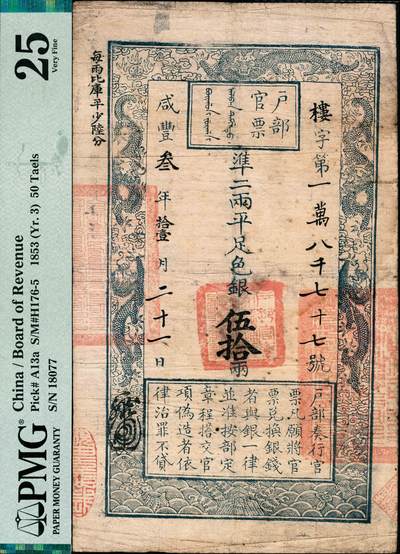 PMG
PAPER MONEY GUARANTY
China / Board of Revenue
Pick# A13a S/M#H176-5 1853 (Yr. 3) 50 Taels
S/N 18077
25
Very Fine
戶部
官票
樓字第一萬八千七十七號
準二兩平足色銀伍拾兩
咸豐叁年拾壹月二十一日
每兩比庫平少陸分
戶部奏行官
票凡願將官
票兌換銀錢
者與銀一律
並准按部定
章程搭交官
項偽造者依
律治罪不貸